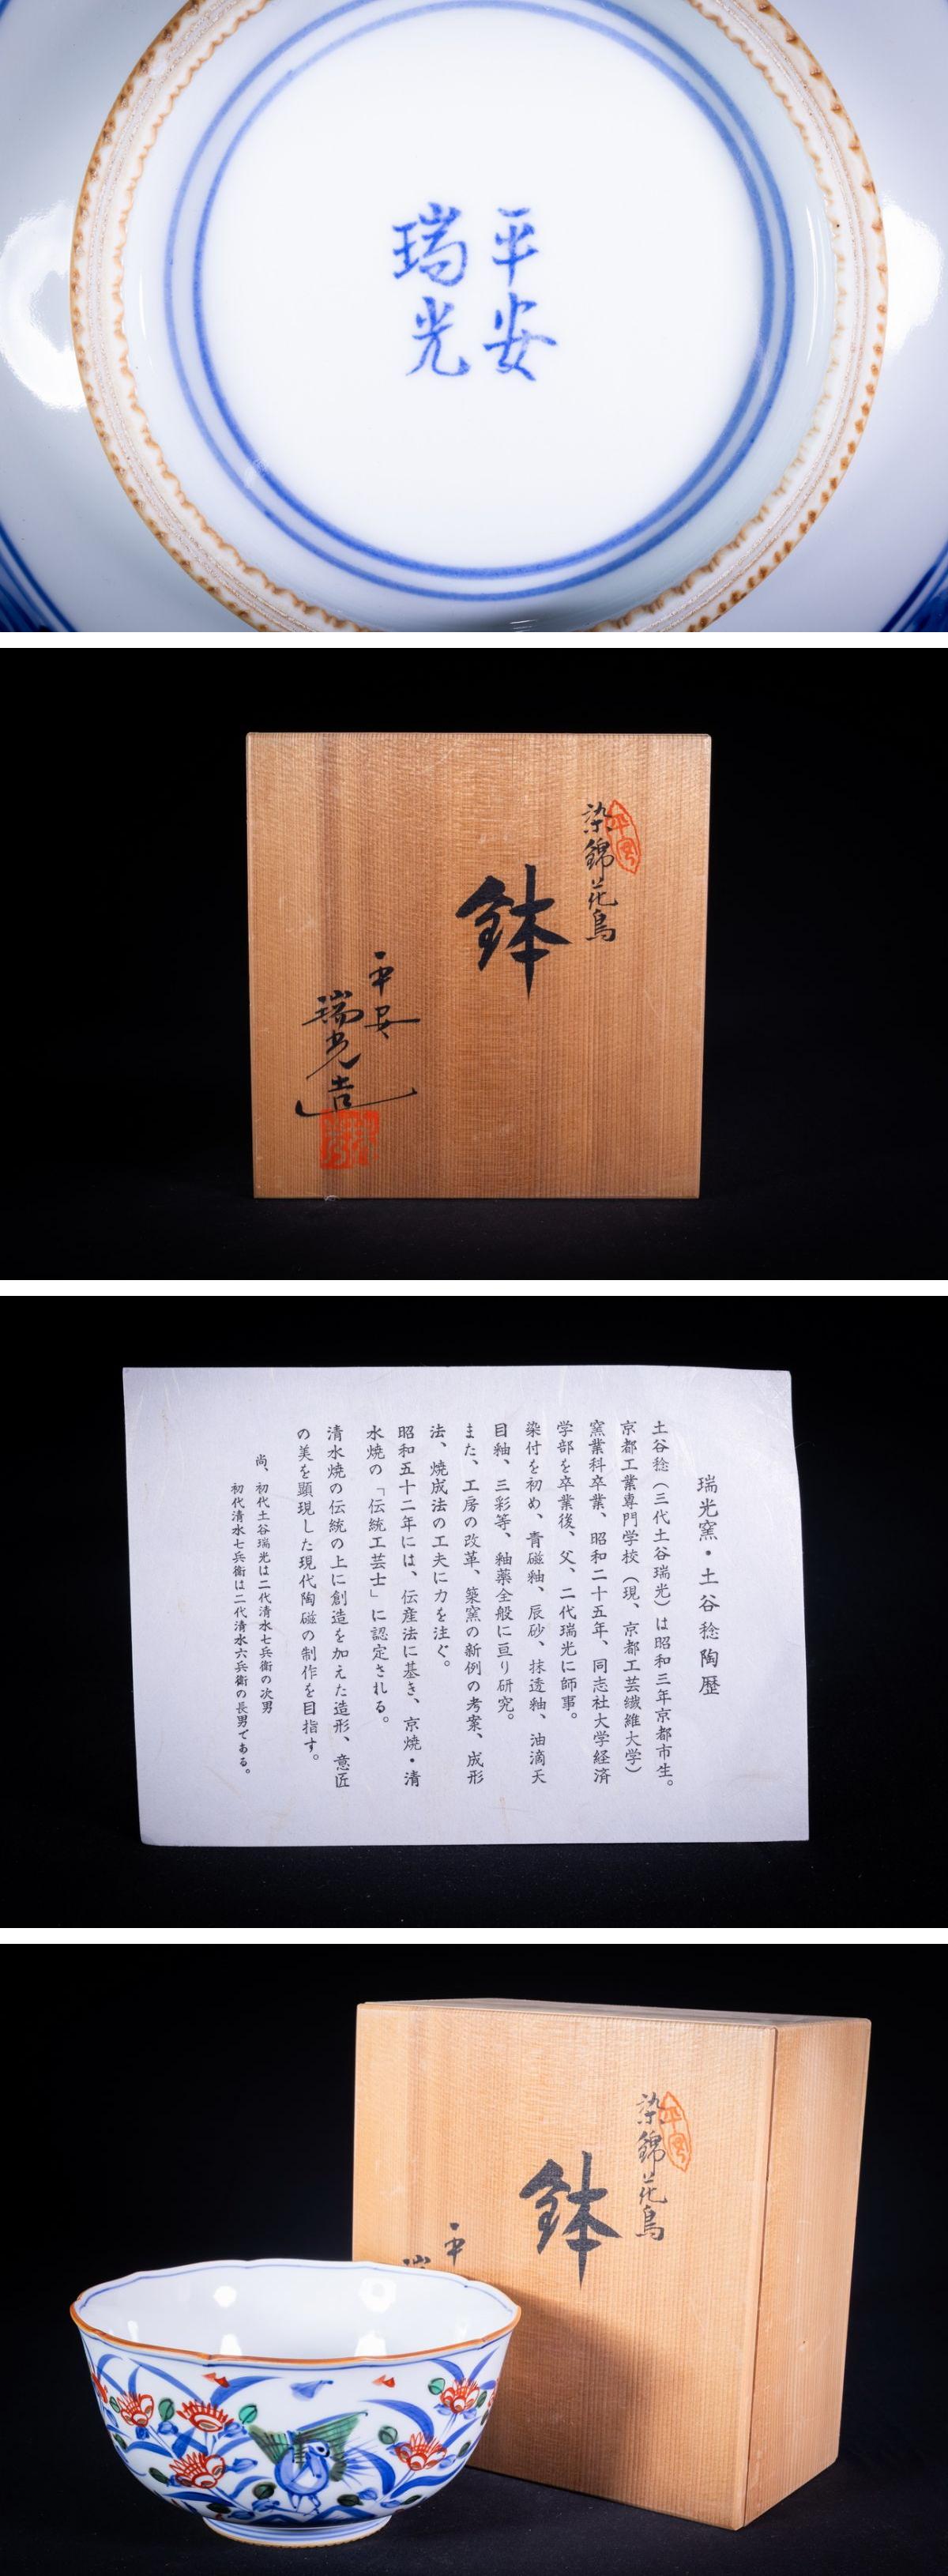 平安
瑞光
染錦花鳥
鉢
平安
瑞光造
瑞光窯・土谷稔陶歴
土谷稔（三代土谷瑞光）は昭和三年京都市生。
京都工業専門学校（現、京都工芸繊維大学）
窯業科卒業、昭和二十五年、同志社大学経済
学部を卒業後、父、二代瑞光に師事。
染付を初め、青磁釉、辰砂、抹透釉、油滴天
目釉、三彩等、釉薬全般に亘り研究。
また、工房の改革、築窯の新例の考案、成形
法、焼成法の工夫に力を注ぐ。
昭和五十二年には、伝産法に基き、京焼・清
水焼の「伝統工芸士」に認定される。
清水焼の伝統の上に創造を加えた造形、意匠
の美を顕現した現代陶磁の制作を目指す。
尚、初代土谷瑞光は二代清水七兵衛の次男
初代清水七兵衛は二代清水六兵衛の長男である。
染錦花鳥
鉢
平
瑞